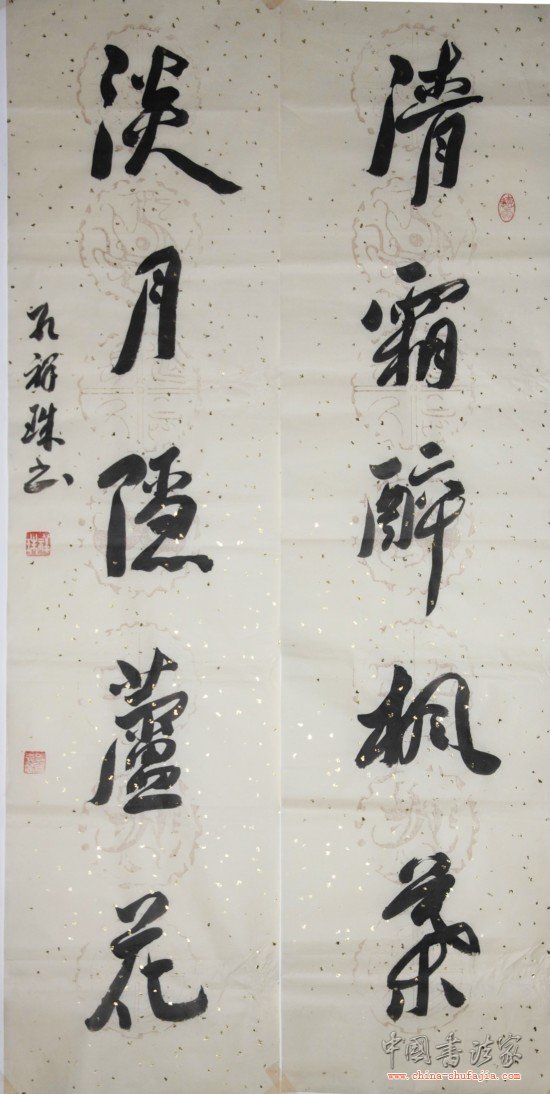 清霜醉楓葉
淡月隱蘆花
孔祥珠书
中國書法家
www.china-shufajia.com